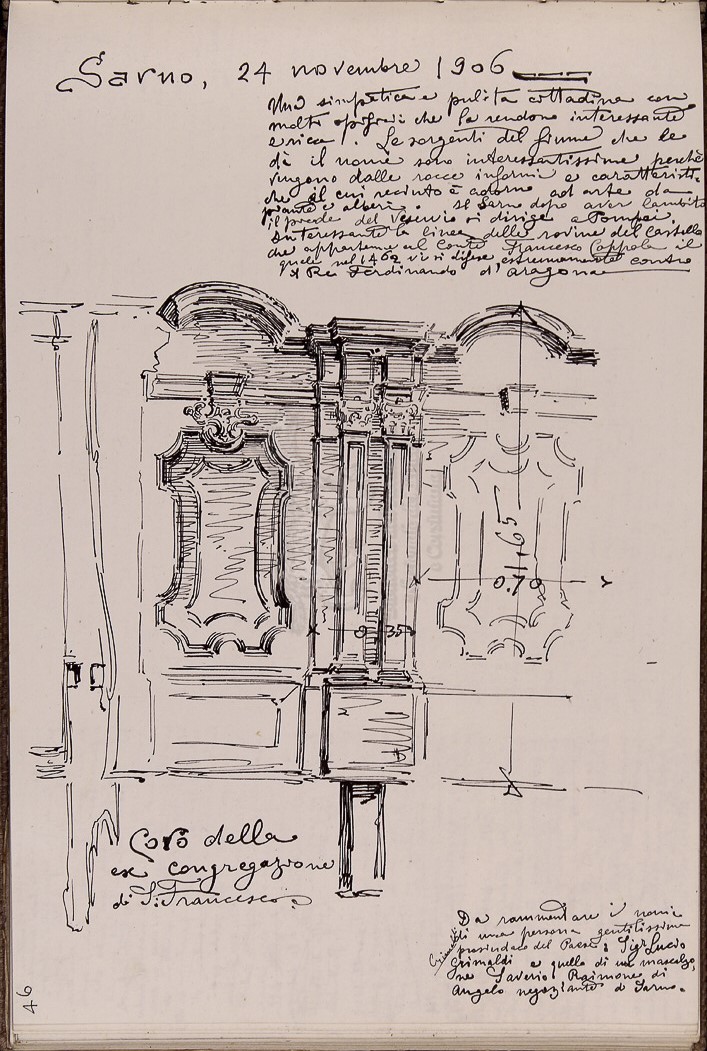 Sarno, 24 novembre 1906
Una simpatica e pulita cittadina con
molti opifici che la rendono interessante
e ricca. Le sorgenti del fiume che le
dà il nome sono interessantissime perchè
vengono dalle rocce informi e caratteristi-
che il cui recinto è adorno ad arte da
piante e alberi. Il Sarno dopo aver lambito
il piede del Vesuvio si dirige a Pompei.
Interessante la linea delle rovine del Castello
che appartenne al Conte Francesco Coppola il
quale nel 1462 vi si difese estremamente contro
il Re Ferdinando d'Aragona
1,65
0.70
0,35
Coro della
ex congregazione
di S. Francesco.
Da rammentare i nomi
di una persona gentilissima
prosindaco del Paese: Sigr Lucio
Grimaldi
Grimaldi e quello di un mascalzo,
ne Saverio Raimone di
Angelo negoziante di Sarno.
46